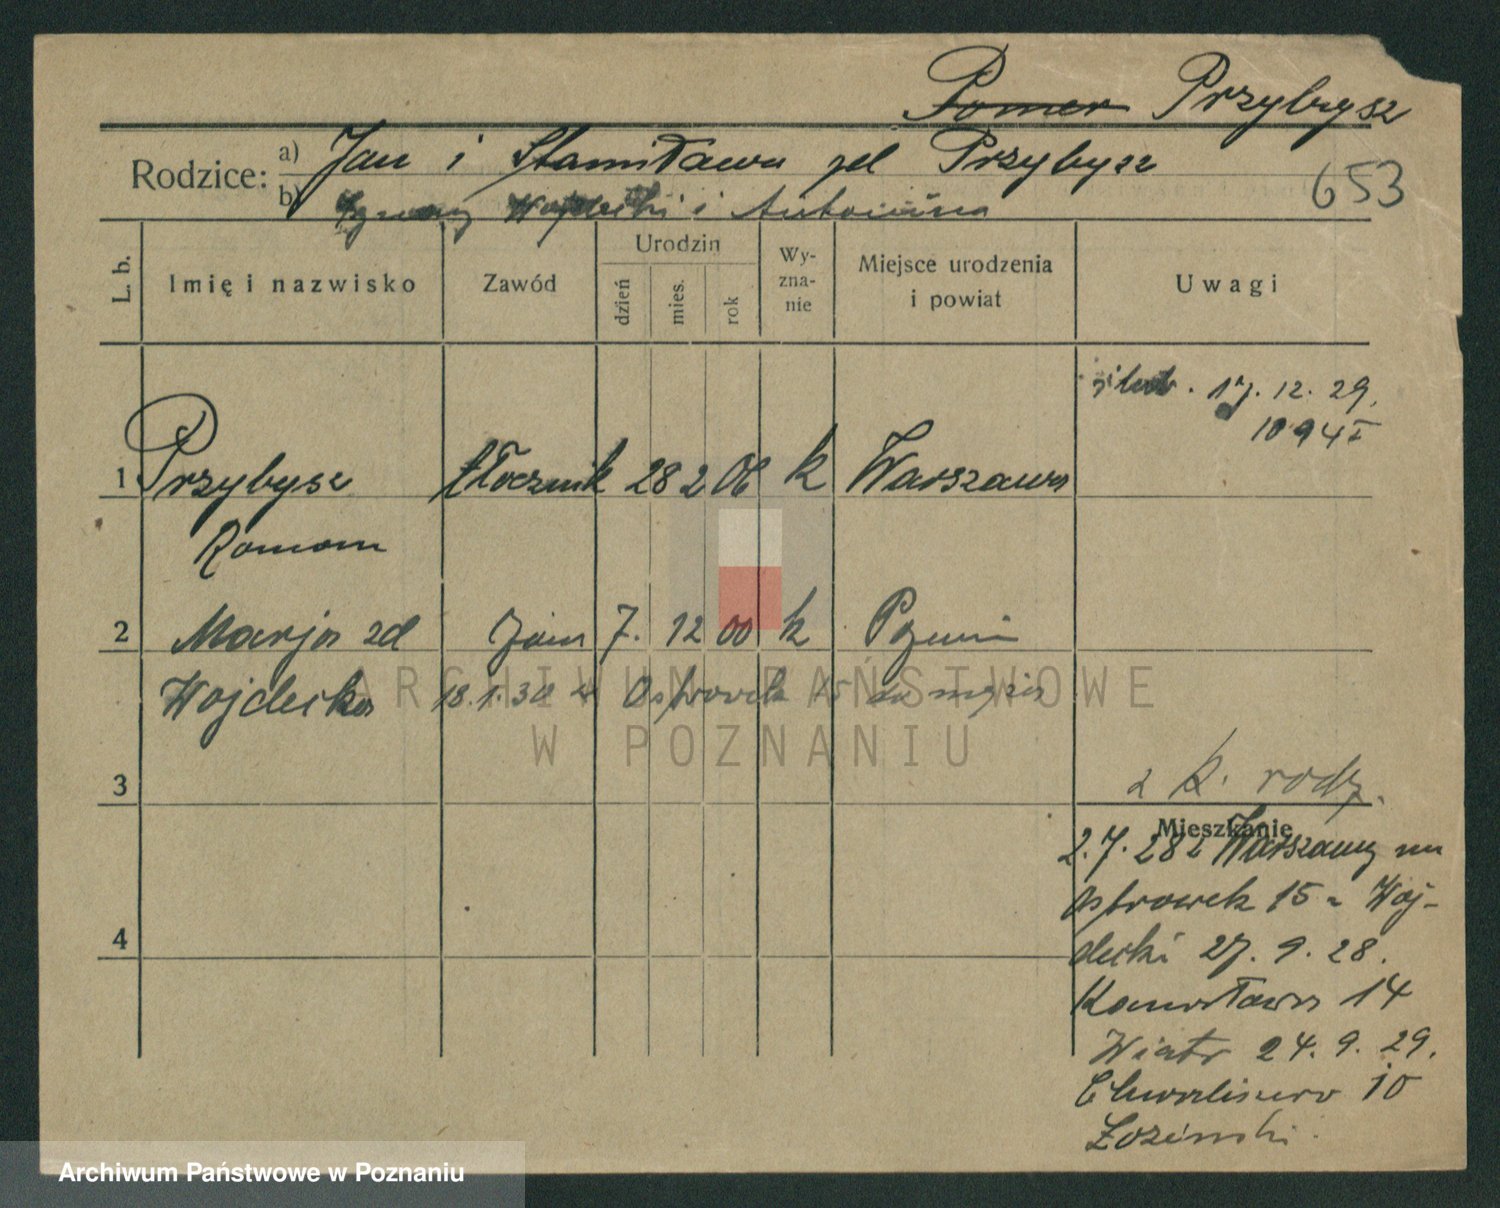 Pomer Przybysz
Rodzice: a) Jan i Stanisława zd Przybysz
b) Wojdecki i Antonina
653
L. b.
Imię i nazwisko
Zawód
Urodzin
dzień
mies.
rok
Wy-
zna-
nie
Miejsce urodzenia
i powiat
Uwagi
ślub. 17. 12. 29.
1094 I
1 Przybysz tłocznik 28 2 06 k Warszawa
Roman
2 Marja zd 7. 12 00 k Poznań
Wojdecka 18.1.30 z Ostrówek 15 do męża
3
z k. rodz.
Mieszkanie
2.7.28 z Warszawy na
Ostrówek 15 Woj-
decki 27. 9. 28.
14
Wiatr 24. 9. 29.
Chwaliszewo 10
4
ARCHIWUM PAŃSTWOWE
W POZNANIU
Archiwum Państwowe w Poznaniu